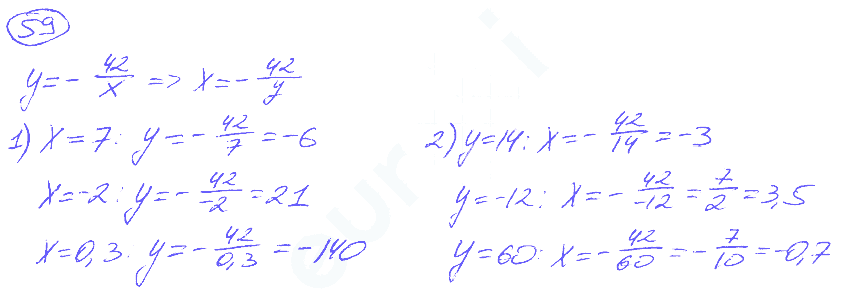 59
y = - 42/x => x = - 42/y
1) x = 7: y = - 42/7 = -6
x = -2: y = - 42/-2 = 21
x = 0,3. y = - 42/0,3 = -140
2) y = 14: x = - 42/14 = -3
y = -12: x = - 42/-12 = 7/2 = 3,5
y = 60: x = - 42/60 = - 7/10 = -0,7